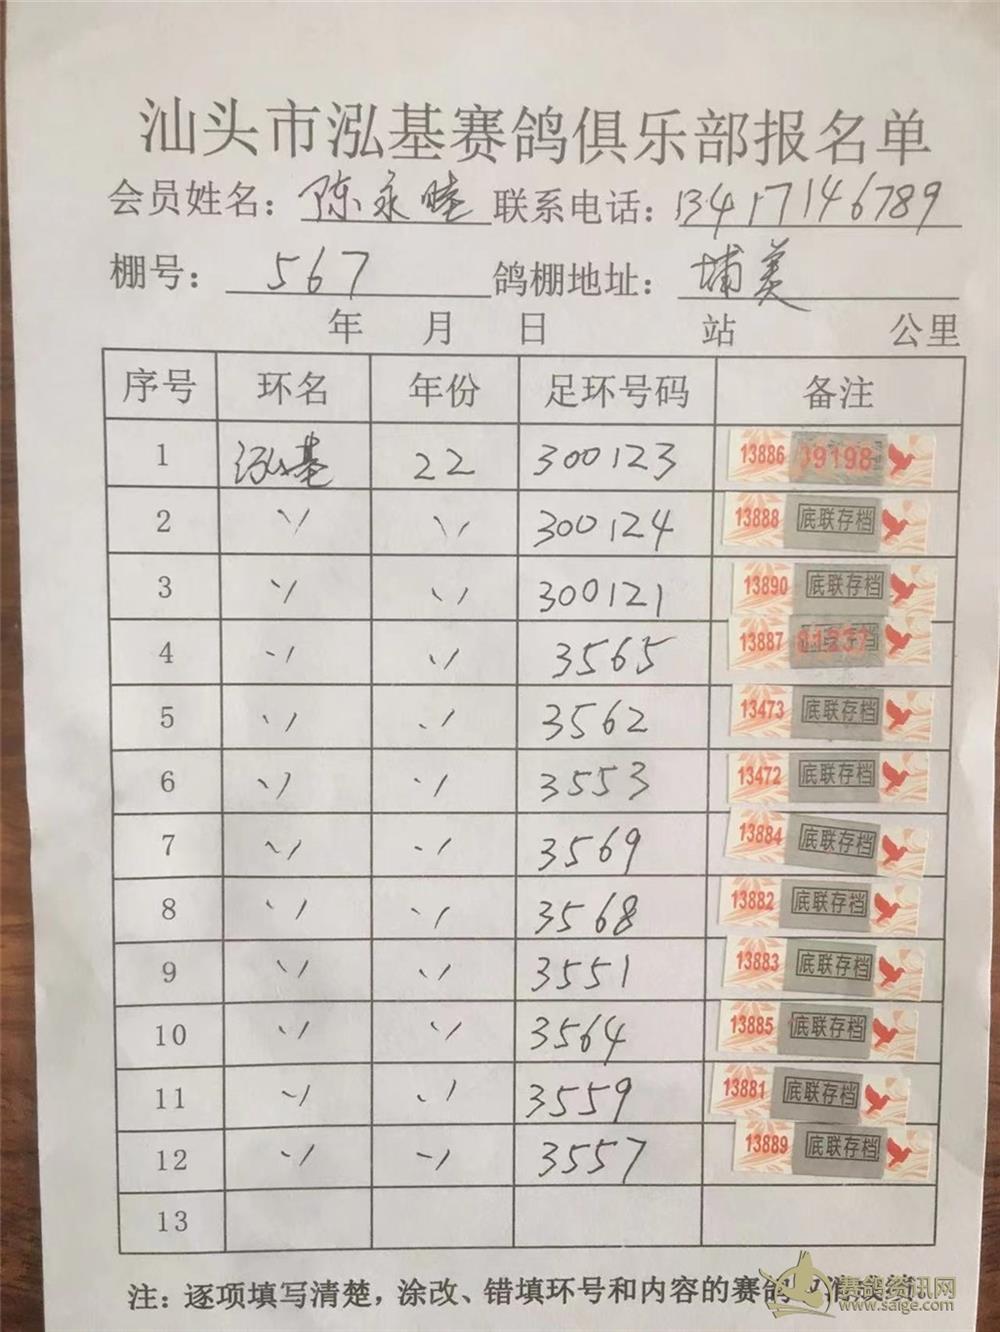 汕头市泓基赛鸽俱乐部报名单
会员姓名：陈永睦 联系电话：13417146789
棚号：567 鸽棚地址：埔美
年 月 日 站 公里
序号 环名 年份 足环号码 备注
1 泓基 22 300123 13886 09198
2 〃 〃 300124 13888 底联存档
3 〃 〃 300121 13890 底联存档
4 〃 〃 3565 13887 01237
5 〃 〃 3562 13473 底联存档
6 〃 〃 3553 13472 底联存档
7 〃 〃 3569 13884 底联存档
8 〃 〃 3568 13882 底联存档
9 〃 〃 3551 13883 底联存档
10 〃 〃 3564 13885 底联存档
11 〃 〃 3559 13881 底联存档
12 〃 〃 3557 13889 底联存档
13
注：逐项填写清楚，涂改、错填环号和内容的赛鸽
赛鸽资讯网
www.saige.com